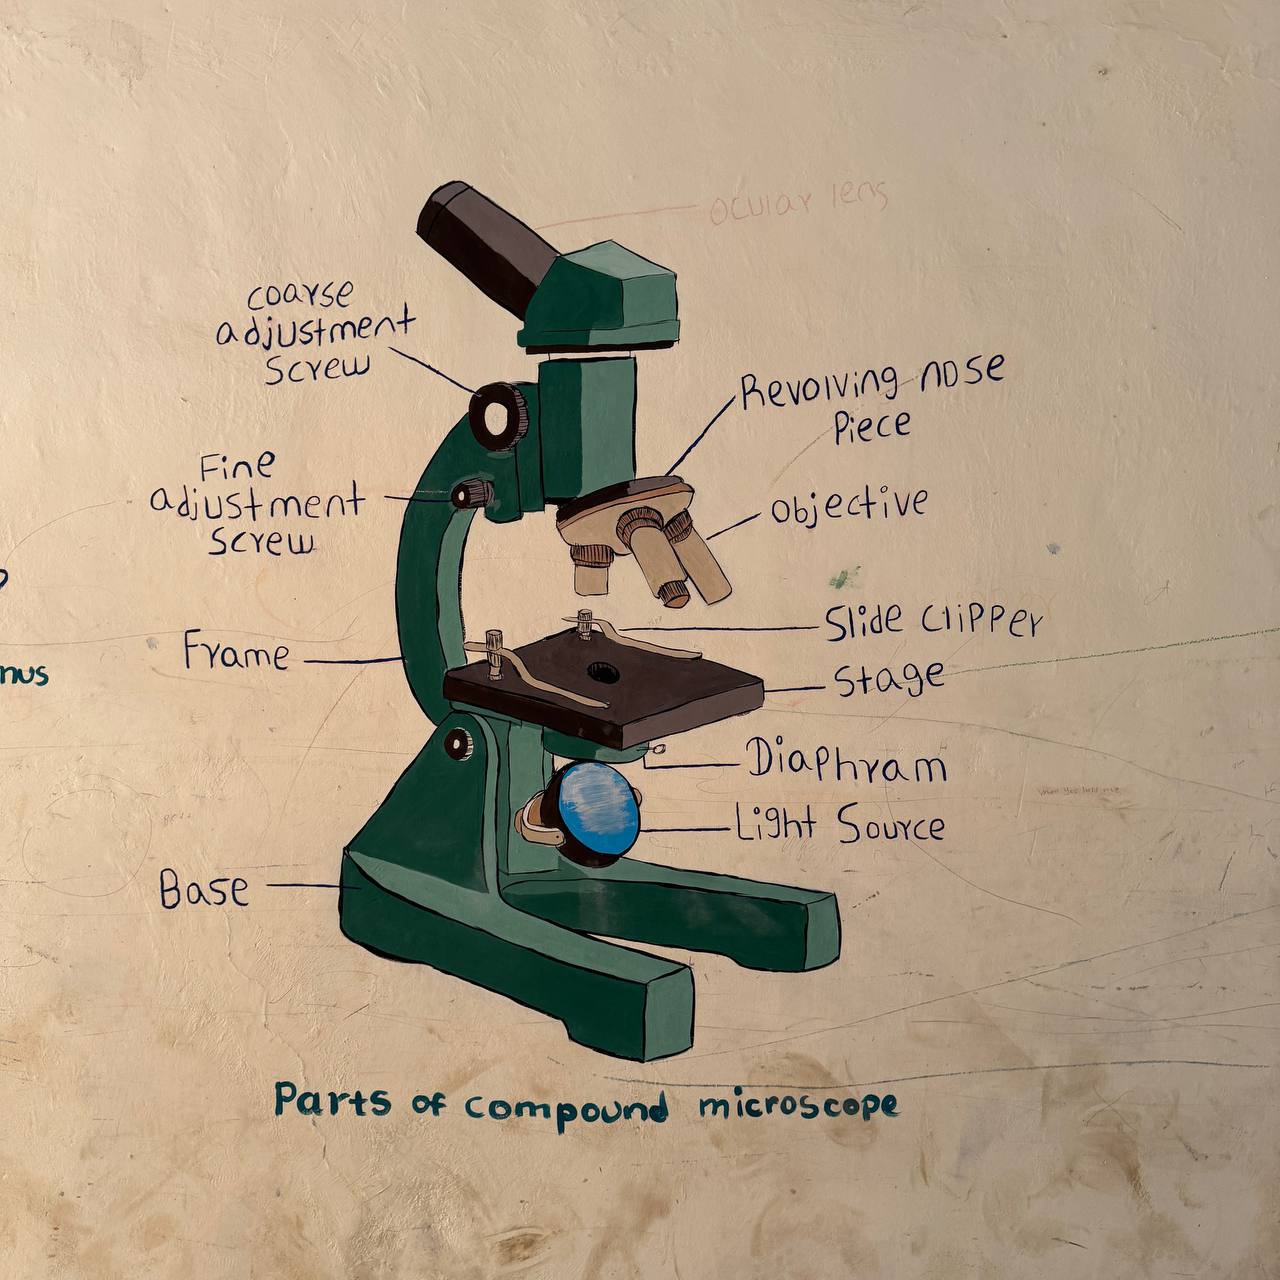 ocular lens
coarse
adjustment
screw
Revolving nose
Piece
Fine
adjustment
screw
objective
Slide clipper
Frame
Stage
nus
Diaphram
Light Source
Base
Parts of compound microscope